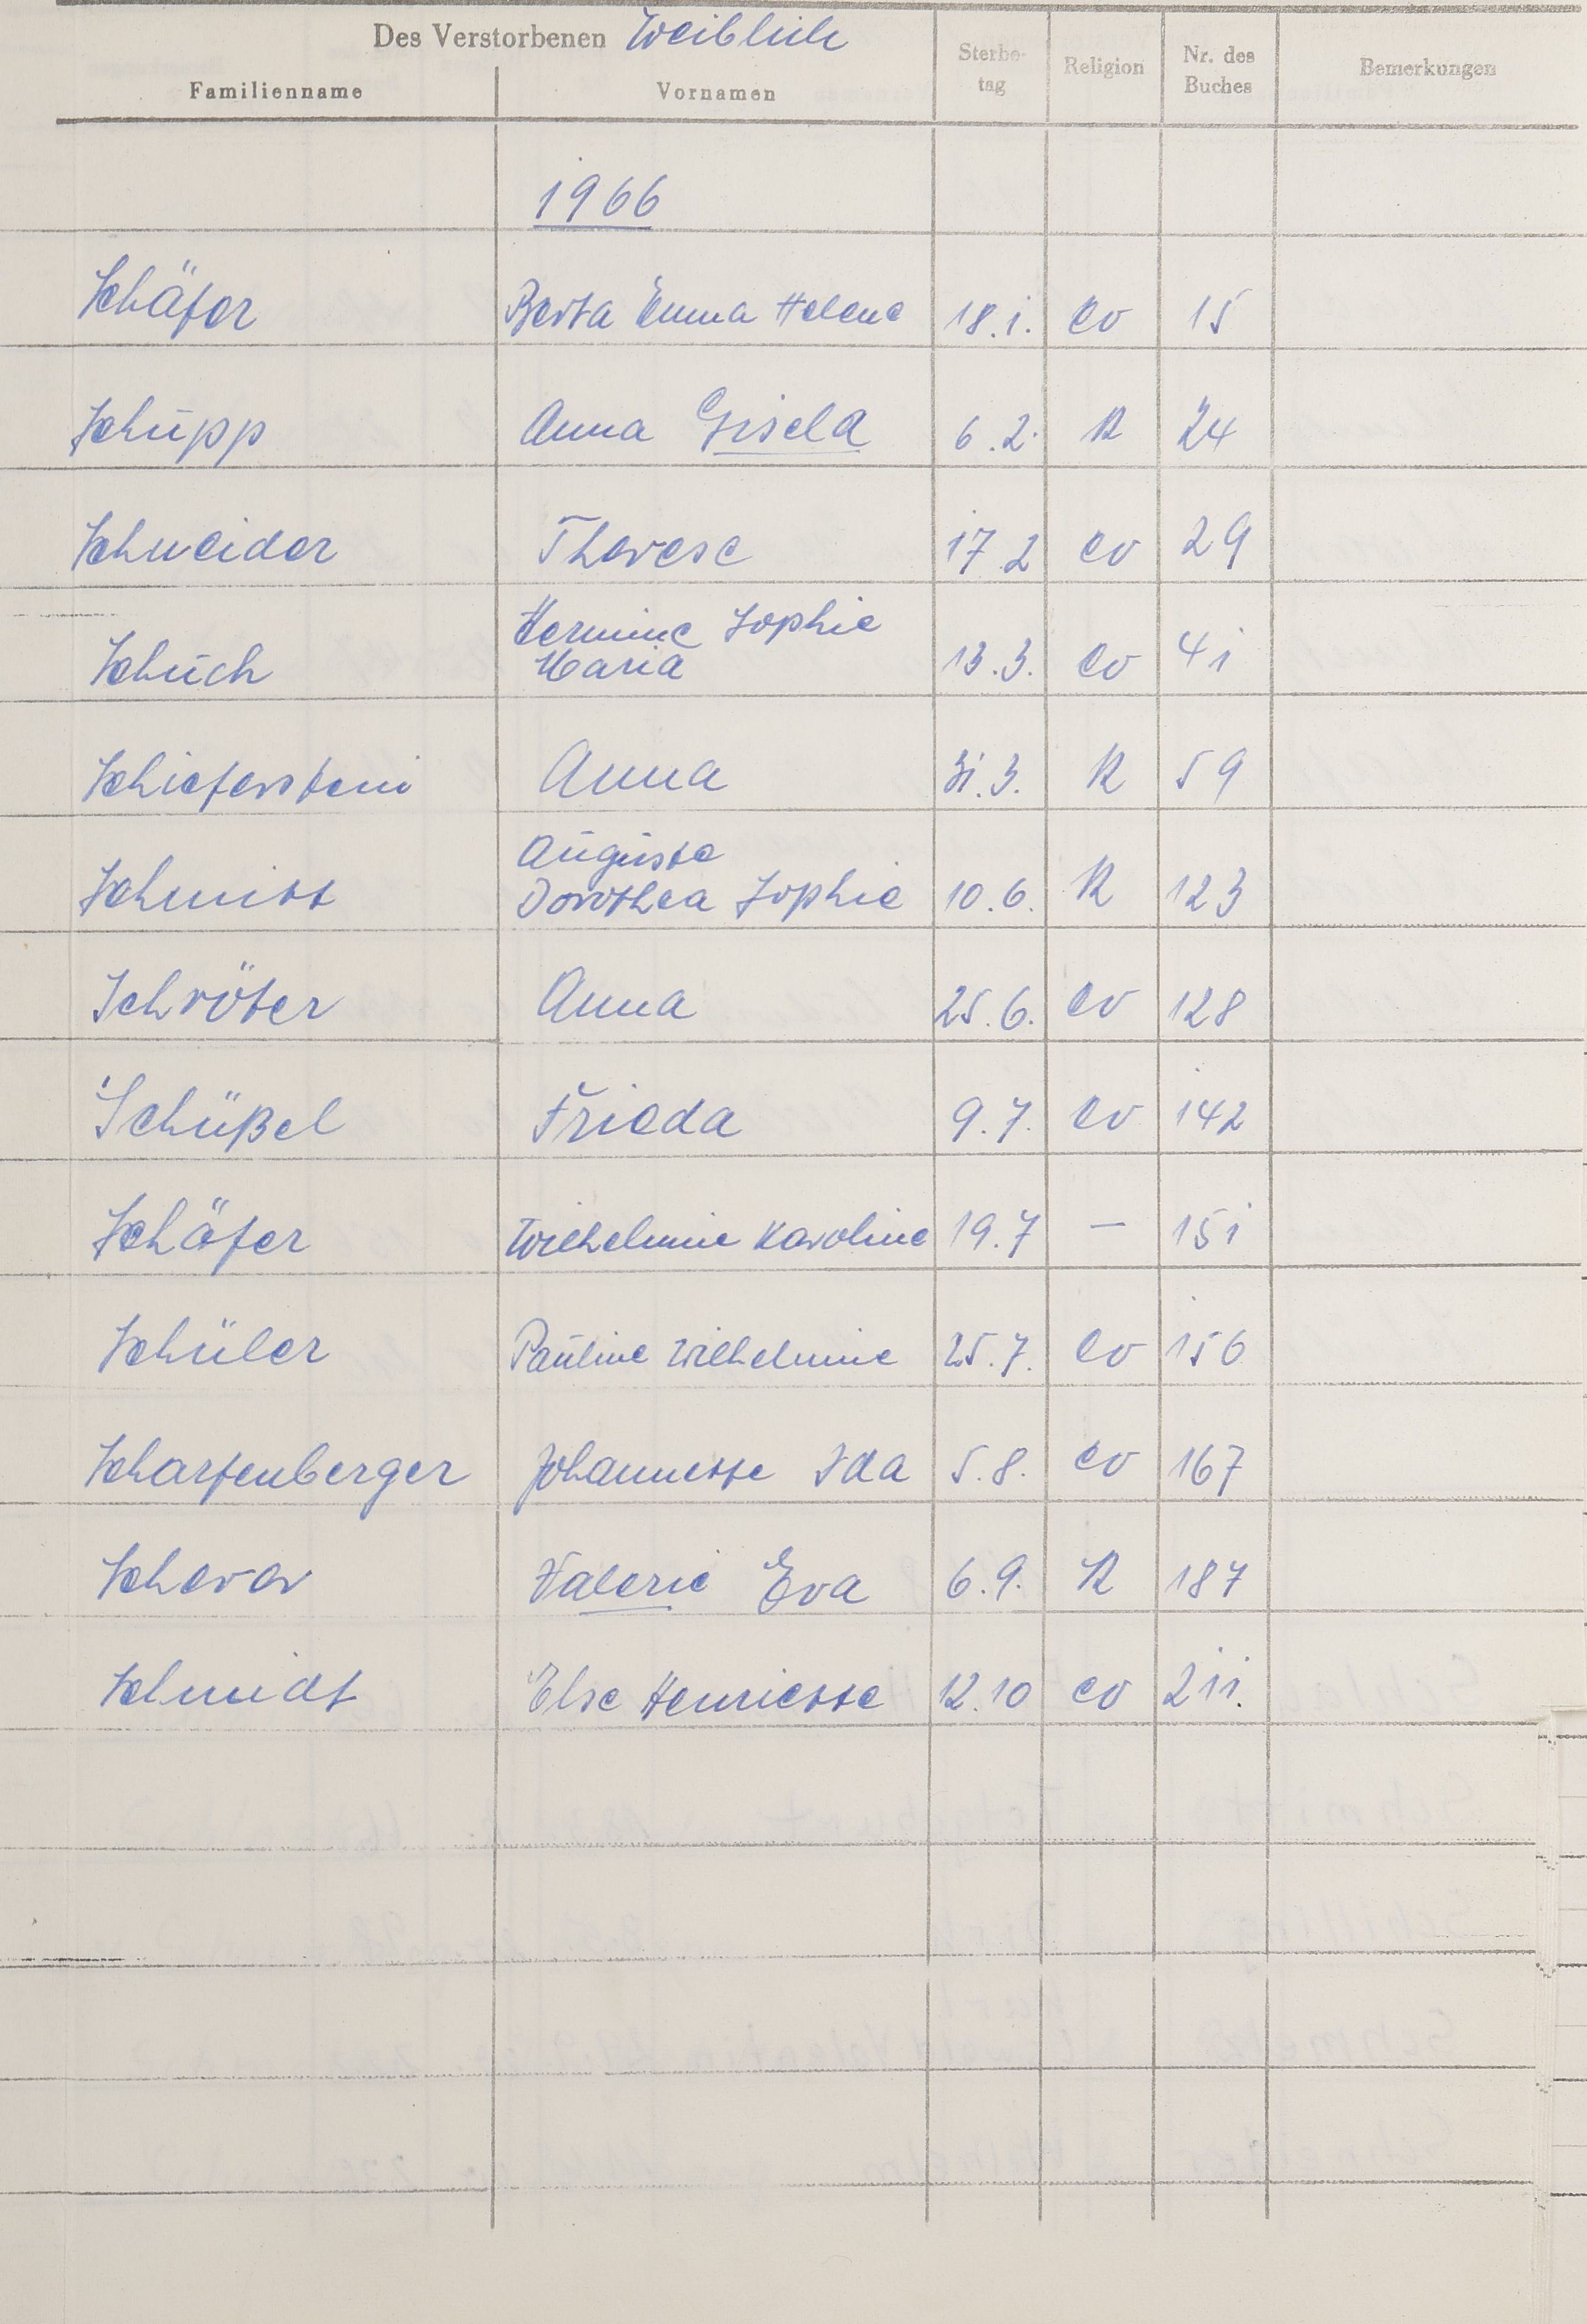 Des Verstorbenen Weiblich
Familienname Vornamen Sterbe- tag Religion Nr. des Buches Bemerkungen
1966
Schäfer Berta Emma Helene 18.1. ev 15
Schupp Anna Gisela 6.2. R 24
Schneider Therese 17.2 ev 29
Hermine Sophie
Schuch Maria 13.3. ev 41
Schieferstein Anna 31.3. R 59
Auguste
Schmitt Dorothea Sophie 10.6. R 123
Schröter Anna 25.6. ev 128
Schüßel Frieda 9.7. ev 142
Schäfer Wilhelmine Karoline 19.7 — 151
Schüler Pauline Wilhelmine 25.7. ev 156
Scharfenberger Johannette Ida 5.8. ev 167
Scherer Valerie Eva 6.9. R 187
Schmidt Else Henriette 12.10 ev 211.